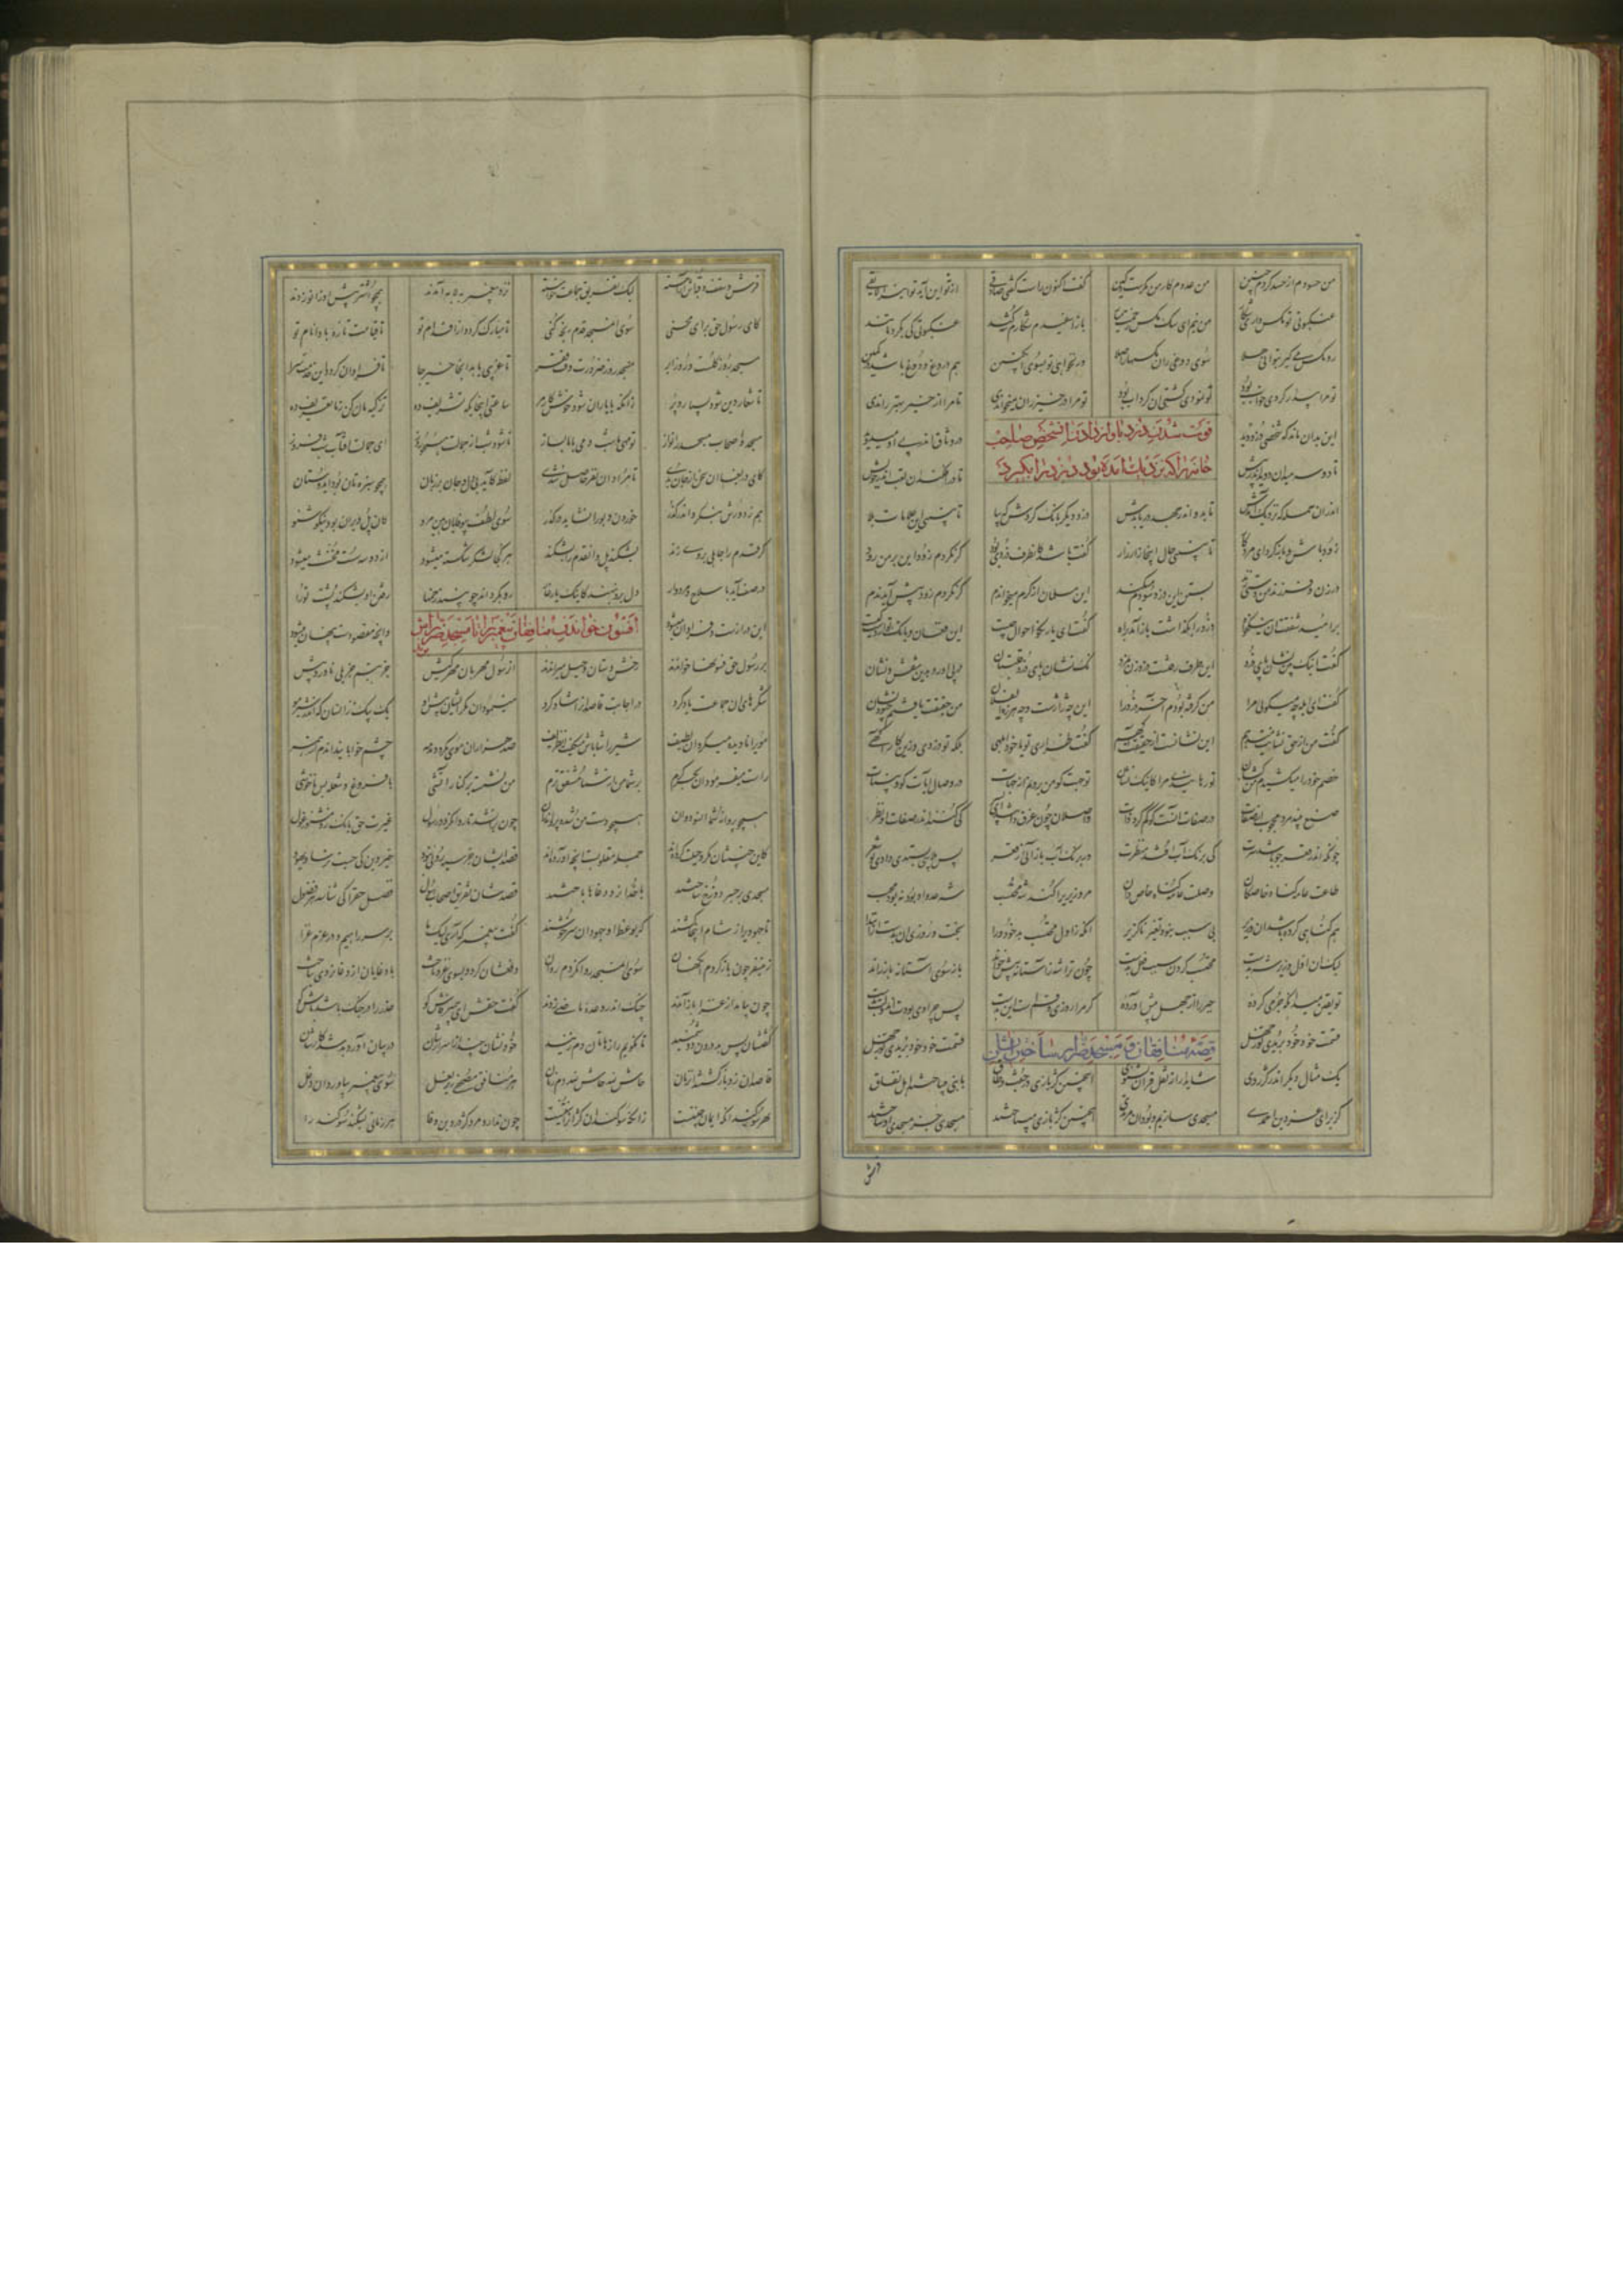 من حسودم از حسد کردم چنین من عدوم کار من مکرست و کین گفت اکنون راست گفتی صادقی از تو این آید تو این را لایقی
عنکبوتی تو مگس داری شکار من نیم ای سگ مگس زحمت میار باز اسپیدم شکارم شه کند عنکبوتی کی بگرد ما تند
رو مگس می گیر تا توانی هلا سوی دوغی زن مگسها را صلا ور بخوانی تو بسوی انگبین هم دروغ و دوغ باشد آن یقین
تو مرا بیدار کردی خواب بود تو نمودی کشتی آن گرداب بود تو مرا در خیر زان میخواندی تا مرا از خیر بهتر راندی
فوت شدن دزد باواز دادن آنشخص صاحب
خانه را که نزدیک آمده بود که دزد را بگیرد
این بدان ماند که شخصی دزد دید در وثاق اندر پی او میدوید
تا دو سه میدان دوید اندر پیش تا در افکند آن تعب اندر خویش
اندران حمله که نزدیک آمدش تا بدو اندر جهد دریابدش دزد دیگر بانگ کردش که بیا تا ببینی این علامات بلا
زود باش و باز گرد ای مرد کار تا ببینی حال اینجا زار زار گفت باشد کانطرف دزدی بود گر نگردم زود این بر من رود
در زن و فرزند من دستی زند بستن این دزد سودم کی کند این مسلمان از کرم میخواندم گر نگردم زود پیش آید ندم
بر امید شفقت آن نیکخواه دزد را بگذاشت باز آمد براه گفت ای یار نکو احوال چیست این فغان و بانگ تو از دست کیست
گفت اینک بین نشان پای دزد این طرف رفتست دزد زن بمزد نک نشان پای دزد قلتبان در پی او رو بدین نقش و نشان
گفت ای ابله چه میگویی مرا من گرفته بودم آخر مر ورا این چه ژاژست و چه هرزه ای فلان من حقیقت یافتم چه بود نشان
گفت من از حق نشانت میدهم این نشانست از حقیقت آگهم گفت طراری تو یا خود ابلهی بلکه تو دزدی و زین کار آگهی
خصم خود را میکشیدم من کشان تو رهانیدی مرا کاینک نشان تو جهت گو من برونم از جهات در وصال آیات کو یا بینات
صنع بیند مرد محجوب از صفات در صفات آنست کو گم کرد ذات واصلان چون غرق ذاتند ای پسر کی کنند اندر صفات او نظر
چونکه اندر قعر جو باشد سرت کی برنگ آب افتد منظرت ور برنگ آب باز آئی ز قعر پس پلاسی بستدی دادی تو شعر
طاعت عامه گناه خاصگان وصلت عامه گناه خاص دان مر وزیری را کند شه محتسب شه عدو او بود نبود محب
هم گناهی کرده باشد آن وزیر بی سبب نبود تغیر ناگزیر آنکه ز اول محتسب بد خود ورا بخت و روزی آن بدست از ابتدا
لیک آن کاول وزیر شه بدست محتسب کردن سبب فعل بدست چون ترا شه ز آستانه پیش خواند باز سوی آستانه باز راند
تو یقین میدان که جرمی کرده جبر را از جهل پیش آورده که مرا روزی و قسمت این بدست پس چرا دی بودت آن دولت بدست
قسمت خود خود بریدی تو ز جهل
قصه منافقان و مسجد ضرار ساختن ایشان
یک مثال دیگر اندر کژروی شاید ار از نقل قرآن بشنوی اینچنین کژ بازیی در جفت و طاق با نبی میباختند اهل نفاق
کز برای عز دین احمدی مسجدی سازیم و بود آن مرتدی اینچنین کژ بازیی میباختند مسجدی جز مسجد او ساختند
فرش
فرش و سقف و قبه اش آراسته لیک تفریق جماعت خواسته نزد پیغمبر بلابه آمدند همچو اشتر پیش او زانو زدند
کای رسول حق برای محسنی سوی آن مسجد قدم رنجه کنی تا مبارک گردد از اقدام تو تا قیامت تازه بادا نام تو
مسجد روز گلست و روز ابر مسجد روز ضرورت وقت فقر تا غریبی یابد آنجا خیر و جا تا فراوان گردد این خدمت سرا
تا شعار دین شود بسیار و پر زانکه با یاران شود خوش کار مر ساعتی آن جایگه تشریف ده تزکیه مان کن ز ما تعریف ده
مسجد و اصحاب مسجد را نواز تو مهی ما شب دمی با ما بساز تا شود شب از جمالت همچو روز ای جمالت آفتاب شب فروز
ای دریغا کان سخن از دل بدی تا مراد آن نفر حاصل شدی لطف کاید بی دل و جان در زبان همچو سبزه تون بود ای دوستان
هم ز دورش بنگر و اندر گذر خوردن و بو را نشاید سوی لطف بی وفایان هین مرو کان پل ویران بود نیکو شنو
گر قدم را جاهلی بر وی زند بشکند پل و آن قدم را بشکند هر کجا لشکر شکسته میشود از دو سه سست مخنث میشود
در صف آید با سلاح او مردوار دل برو بنهند کاینک یار غار رو بگرداند چو بیند زخمها رفتن او بشکند پشت ترا
این درازست و فراوان میشود وانچه مقصودست پنهان میشود
افسون خواندن منافقان پیغمبر را تا بمسجد ضرارش
بر رسول حق فسونها خواندند رخش دستان و حیل میراندند آن رسول مهربان رحم کیش جز تبسم جز بلی ناورد پیش
شکرهای آن جماعت یاد کرد در اجابت قاصدان را شاد کرد مینمود آن مکر ایشان پیش او یک بیک زانسان که اندر شیر مو
موی را نادیده میکرد آن لطیف شیر را شاباش میگفت آن ظریف صد هزاران موی مکر و دمدمه چشم خوابانید آن دم زان همه
راست میفرمود آن بحر کرم بر شما من از شما مشفق ترم من نشسته بر کنار آتشی با فروغ و شعله بس ناخوشی
همچو پروانه شما آن سو دوان هر دو دست من شده پروانه ران چون بر آن شد تا روان گردد رسول غیرت حق بانگ زد مشنو ز غول
کاین خبیثان مکر و حیلت کرده اند جمله مقلوبست آنچه آورده اند قصد ایشان جز سیه رویی نبود خیر دین کی جست ترسا و جهود
مسجدی بر جسر دوزخ ساختند با خدا نرد دغاها باختند قصدشان تفریق اصحاب رسول فضل حق را کی شناسد هر فضول
تا جهودی را ز شام اینجا کشند که بوعظ او جهودان سرخوشند گفت پیغمبر که آری لیک ما بر سر راهیم و در عزم غزا
زین سفر چون باز گردم آنگهان سوی آن مسجد روان گردم روان دفعشان کرد و بسوی غزو تاخت با دغایان از دغا نردی بباخت
چون بیامد از غزا باز آمدند چنگ اندر وعده ماضی زدند گفت حقش ای پیمبر فاش گو عذر را ور جنگ باشد باش گو
گفتشان بس بد درون و دشمنید تا نگویم رازهاتان دم زنید چون نشانی چند از اسرارشان در بیان آورد بد شد کارشان
قاصدان زو باز گشتند آن زمان حاش لله حاش لله دم زنان هر منافق مصحفی زیر بغل سوی پیغمبر بیاورد از دغل
بهر سوگندان که ایمان جنتیست زانکه سوگند آن کژان را سنتیست چون ندارد مرد کژ در دین وفا هر زمانی بشکند سوگند را